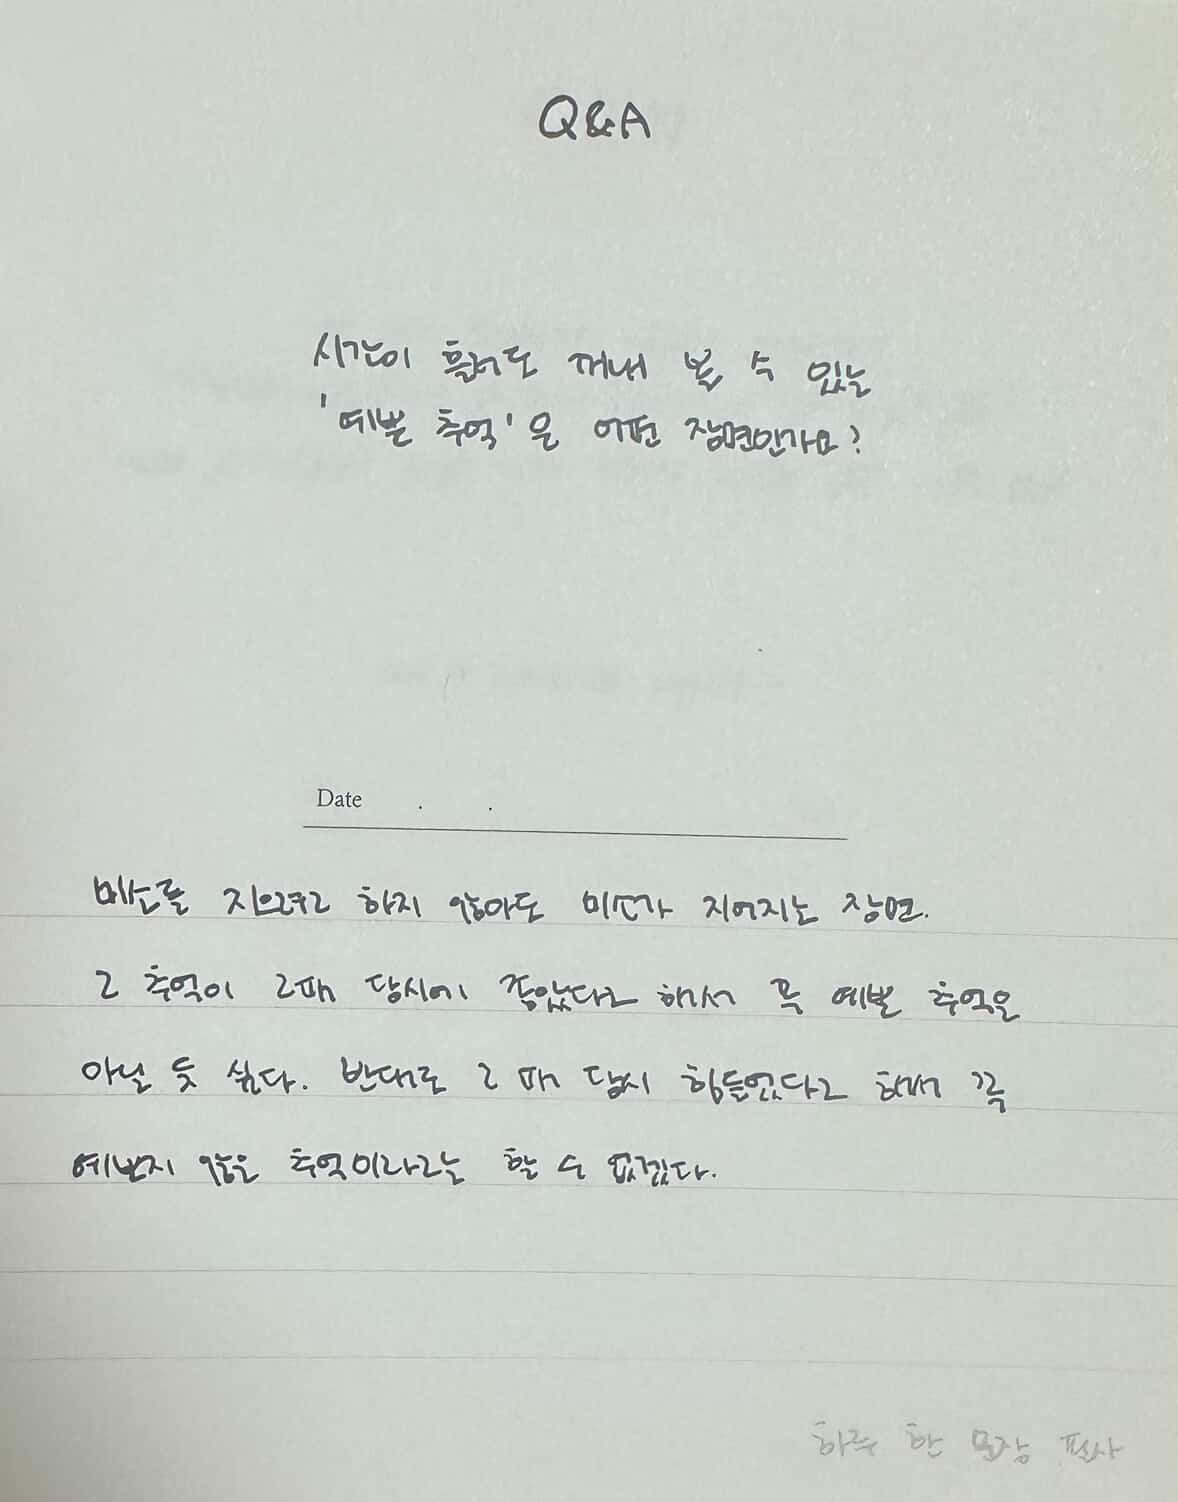 Q&A
시간이 흘러도 꺼내 볼 수 있는
'예쁜 추억'은 어떤 장면인가요?
Date . .
미소를 지으려고 하지 않아도 미소가 지어지는 장면.
그 추억이 그때 당시에 좋았다고 해서 꼭 예쁜 추억은
아닐 듯 싶다. 반대로 그 때 당시 힘들었다고 해서 꼭
예쁘지 않은 추억이라고는 할 수 없겠다.
하루 한 문장 필사